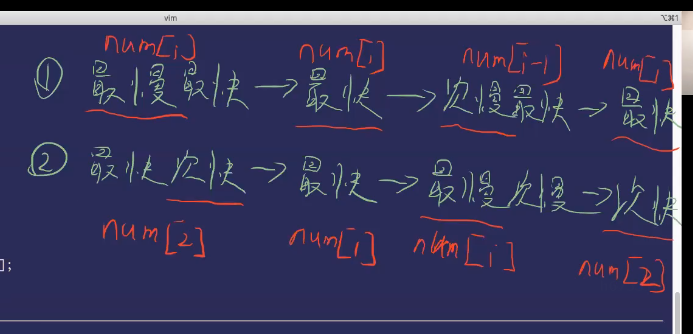 vim
⌥⌘1
num[i] num[1] num[i-1] num[1]
① 最慢最快→最快→次慢最快→最快
② 最快次快→最快→最慢次慢→次快
num[2] num[1] num[i] num[2]
];